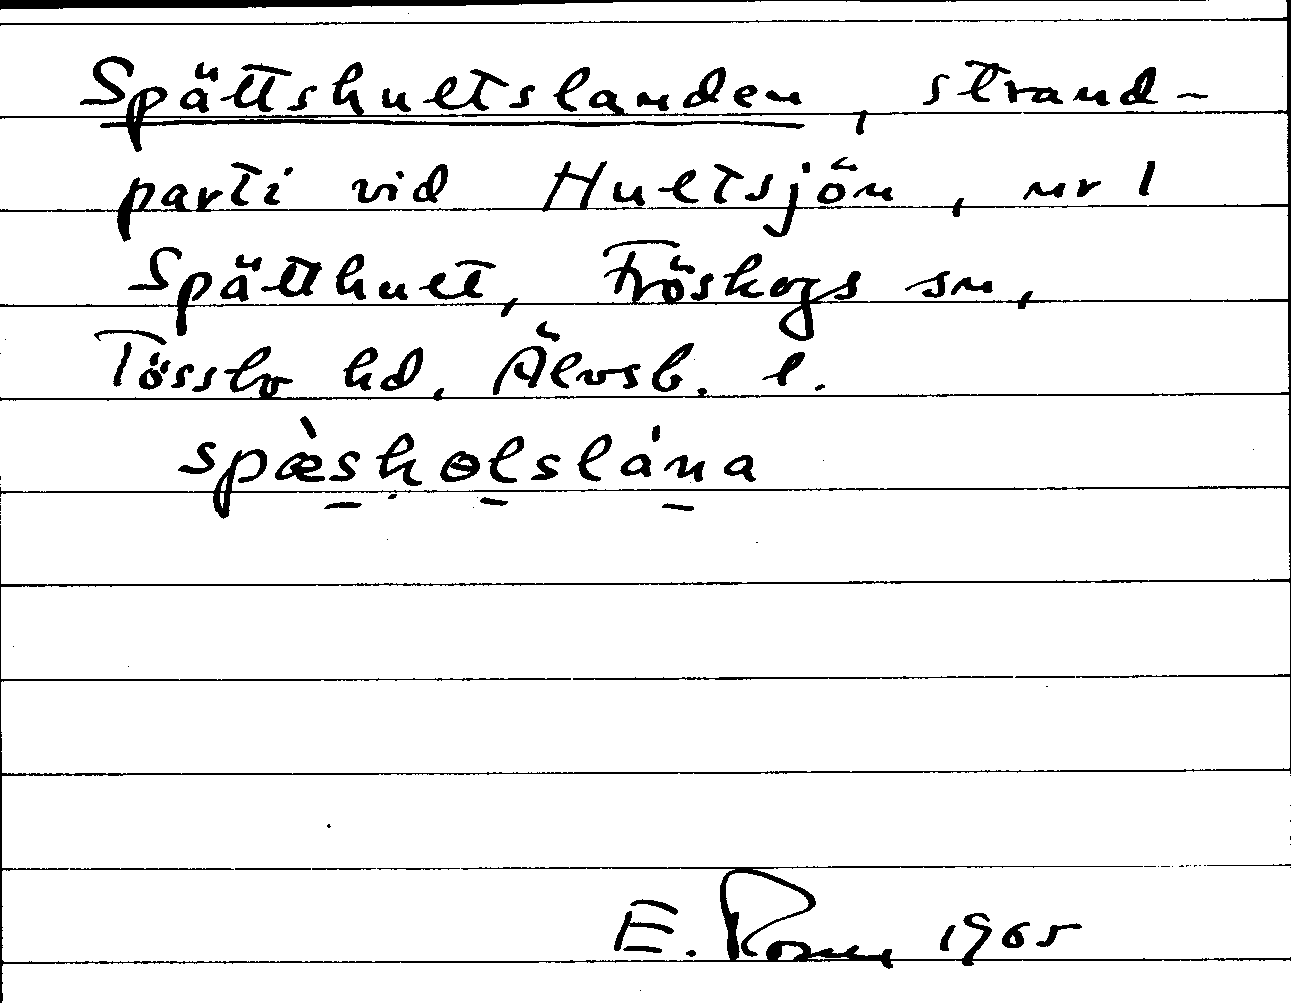 Spättshultslanden, strand-
parti vid Hultsjön, nr 1
Spätthult, Fröskogs sn,
Tössbo hd, Älvsb. l.
spæ̀sholslána
E. Rosen 1965